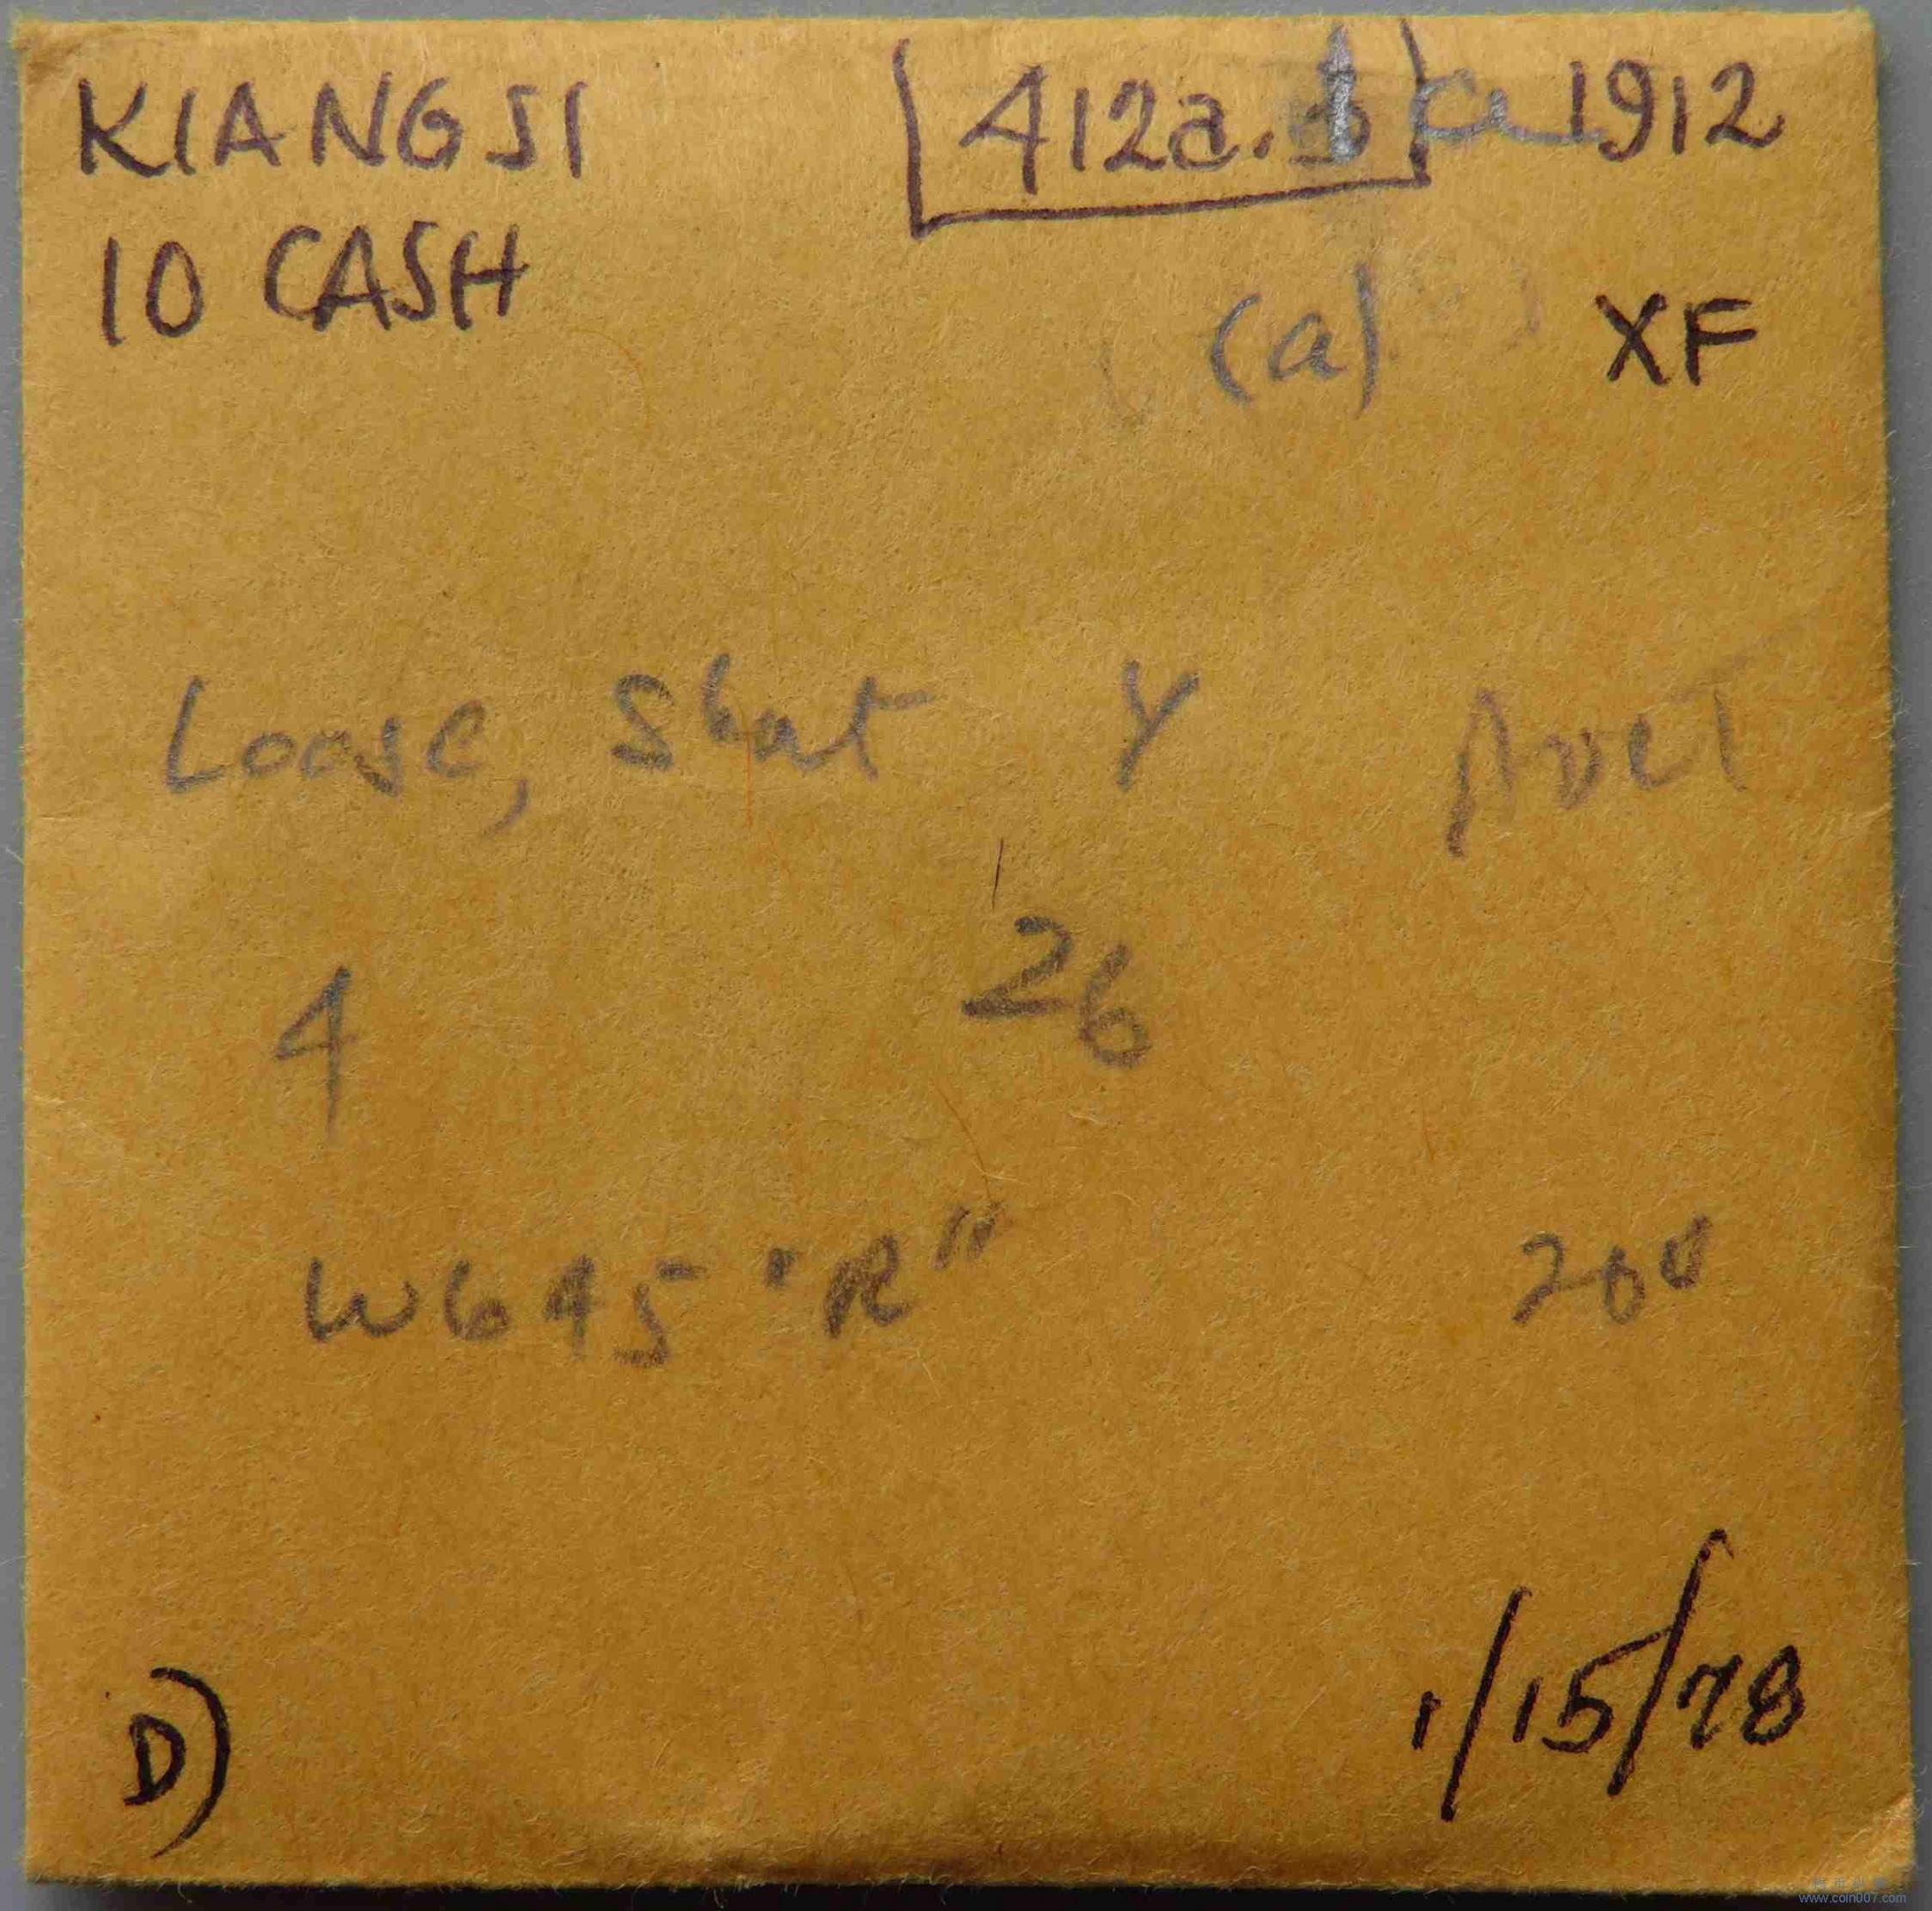 KIANGSI 412a. a 1912
10 CASH (a) XF
Loose, Y
4 26
W645 "R" 200
D) 1/15/78
www.coin007.com